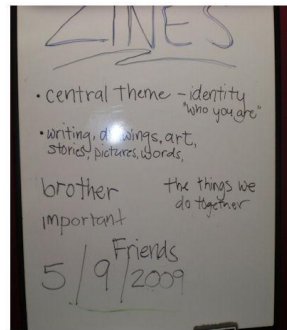 ZINES
• central theme - identity
"who you are"
• writing, drawings, art,
stories, pictures, words,
brother
the things we
do together
important
Friends
5/9/2009